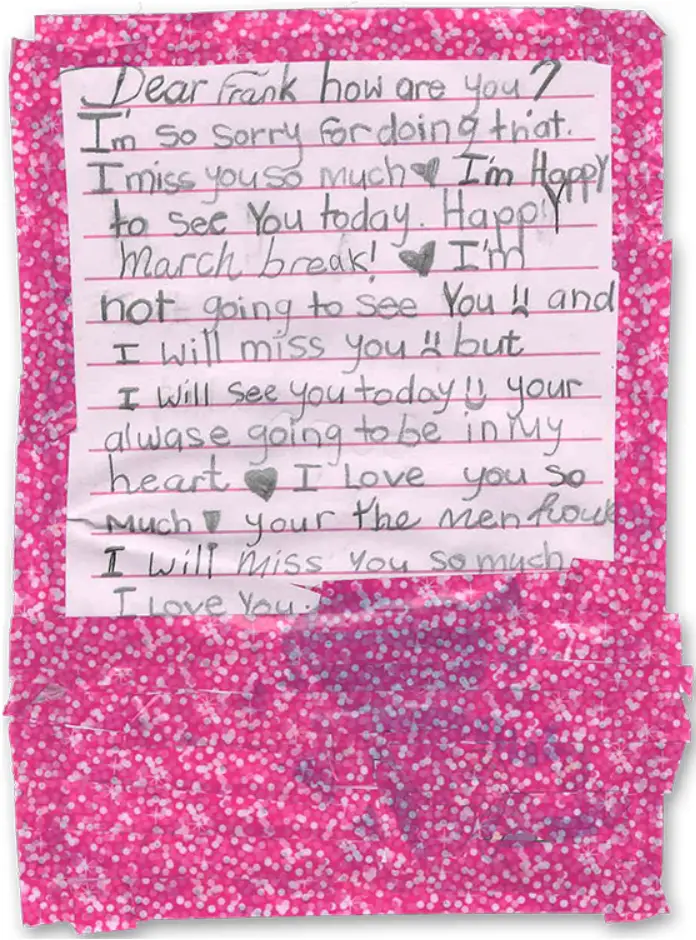 Dear Frank how are you?
I'm so sorry for doing that.
I miss you so much ♥ I'm Happy
to see You today. Happy
March break! ♥ I'm
not going to see You :( and
I will miss you :( but
I will see you today :) your
alwase going to be in My
heart ♥ I Love you so
much ♥ your the men
I will miss You so much
I Love You.